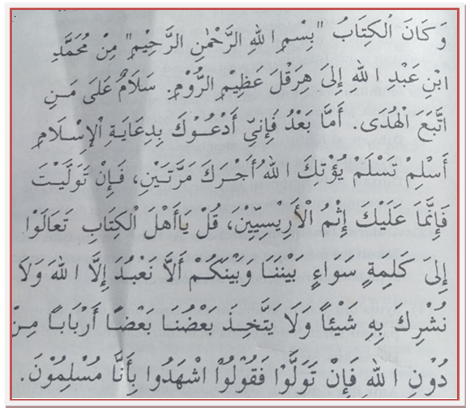 وَكَانَ الْكِتَابُ "بِسْمِ اللهِ الرَّحْمٰنِ الرَّحِيْمِ" مِنْ مُحَمَّدِ
ابْنِ عَبْدِ اللهِ إِلىَ هِرَقْلَ عَظِيْمِ الرُّوْمِ. سَلَامٌ عَلىَ مَنِ
اتَّبَعَ الْهُدَى. أَمَّا بَعْدُ فَإِنِّي أَدْعُوْكَ بِدِعَايَةِ الْإِسْلَامِ
أَسْلِمْ تَسْلَمْ يُؤْتِكَ اللهُ أَجْرَكَ مَرَّتَيْنِ، فَإِنْ تَوَلَّيْتَ
فَإِنَّمَا عَلَيْكَ إِثْمُ الْأَرِيْسِيِّيْنَ، قُلْ يَاأَهْلَ الْكِتَابِ تَعَالَوْا
إِلىَ كَلِمَةٍ سَوَاءٍ بَيْنَنَا وَبَيْنَكُمْ أَلاَّ نَعْبُدَ إِلَّا اللهَ وَلَا
نُشْرِكَ بِهِ شَيْئاً وَلَا يَتَّخِذَ بَعْضُنَا بَعْضًا أَرْبَاباً مِنْ
دُوْنِ اللهِ فَإِنْ تَوَلَّوْا فَقُوْلُوْا اشْهَدُوا بِأَنَّا مُسْلِمُوْنَ.